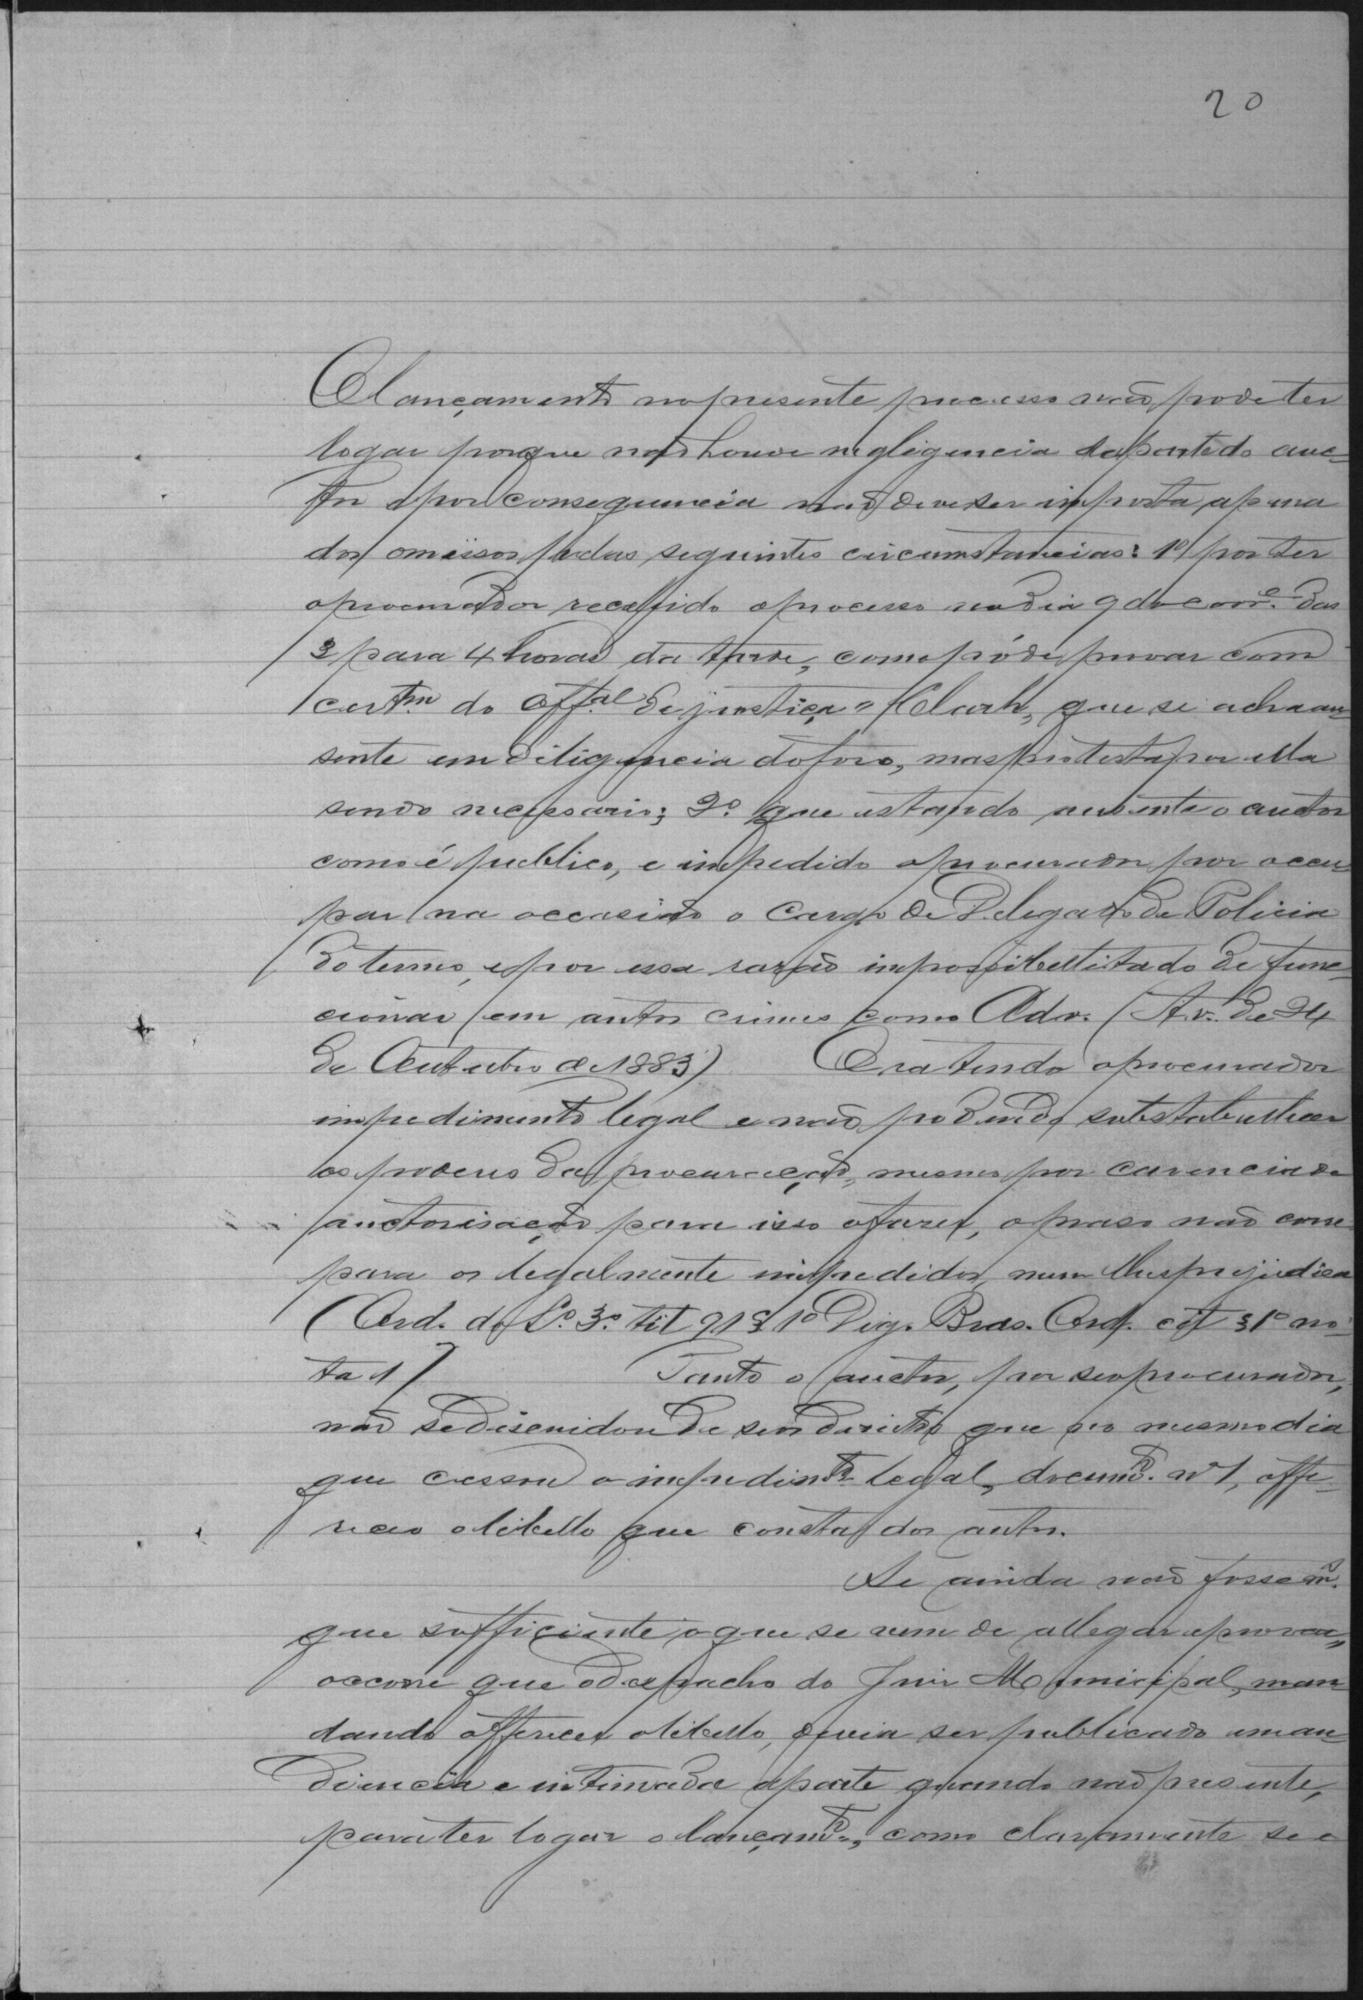 20
O lançamento no presente processo não pode ter
logar porque não houve negligencia da parte do auc-
tor e por consequencia não deve ser imposta a pena
dos omissos pelas seguintes circumstancias: 1º por ter
o procurador recebido o processo no dia 9 do corre. das
3 para 4 horas da tarde, como póde provar com
certam do Offal de justiça Clark, que se acha au-
sente em diligencia do foro, mas protesta por ella
sendo necessario; 2º. que estando ausente o auctor
como é publico, e impedido o procurador por occu-
par na occasião o cargo de Delegado de Policia
do termo, e por essa razão impossibellitado de func-
cionar em autos crimes como Adv. (Av. de 24
de Outubro de 1883) Ora tendo o procurador
impedimento legal e não podendo substabellecer
os poderes da procuração, mesmo por carencia de
auctorisação para isso o fazer, o praso não corre
para os legalmente impedidos, nem lhes prejudica
(Ord. do Lº. 3º. tit 21 § 1º Dig. Bras. Ord. cit § 1º no-
ta 1) Tanto o auctor, por seo procurador,
não se discuidou de seu direito que no mesmo dia
que cessou o impedimto legal, documto. nº 1, offe-
receo o libello que consta dos autos.
Se ainda não fosse ms.
que sufficiente o que se vem de allegar e provar,
occorre que o despacho do Juiz Municipal, man-
dando offerecer o libello, devia ser publicado em au-
diencia e intimada a parte quando não presente,
para ter logar o lançamto., como claramente se e